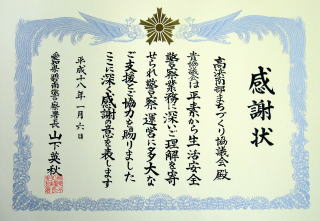 感謝状
高浜南部まちづくり協議会 殿
貴協議会は平素から生活安全
警察業務に深いご理解を寄
せられ警察運営に多大な
ご支援とご協力を賜りました
ここに深く感謝の意を表します
平成十八年一月六日
愛知県碧南警察署長 山下英秋